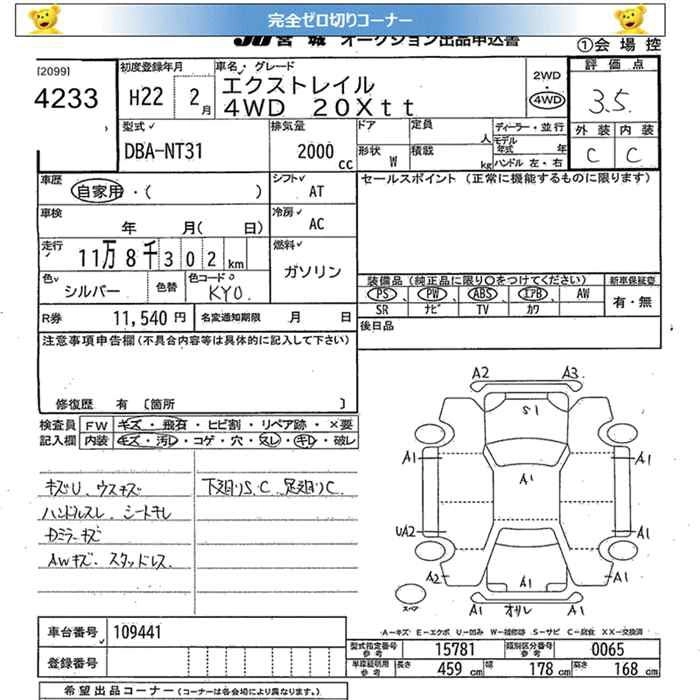 完全ゼロ切りコーナー
JU 宮城 オークション出品申込書
①会場控
[2099]
4233
初度登録年月
H22 2月
車名・グレード
エクストレイル
4WD 20Xtt
2WD
・
4WD
評価点
3.5
外装 内装
C C
型式
DBA-NT31
排気量
2000 cc
ドア 定員 人
形状 W 積載 kg
ディーラー・並行
モデル年式 年
ハンドル 左・右
車歴
自家用・( )
シフト AT
セールスポイント (正常に機能するものに限ります)
車検
年 月( 日)
冷房 AC
走行
11万8千302km
燃料
ガソリン
色 シルバー
色替
色コード
KY0.
装備品 (純正品に限り○をつけてください)
新車保証書
PS PW ABS エアB AW
SR ナビ TV カワ
有・無
R券 11,540円
名変通知期限 月 日
後日品
注意事項申告欄(不具合内容等は具体的に記入して下さい)
修復歴 有 〔箇所 〕
検査員記入欄
FW キズ・飛石・ヒビ割・リペア跡・×要
内装 キズ・汚レ・コゲ・穴・スレ・キレ・破レ
キズU、ウスキズ
ハンドルスレ、シートキレ
AWキズ、スタッドレス
下廻りS,C 足廻りC.
A2 A3
S1
A1 A1
A1
UA2 A1
A2 A1
A1
スペア
A1 オリレ A1
A−キズ E−エクボ U−凹み W−補修跡 S−サビ C−腐食 XX−交換済
車台番号 109441
型式指定番号 参考 15781
類別区分番号 参考 0065
登録番号
車庫証明用 参考
長さ 459 cm 幅 178 cm 高さ 168 cm
希望出品コーナー (コーナーは各会場により異なります。)